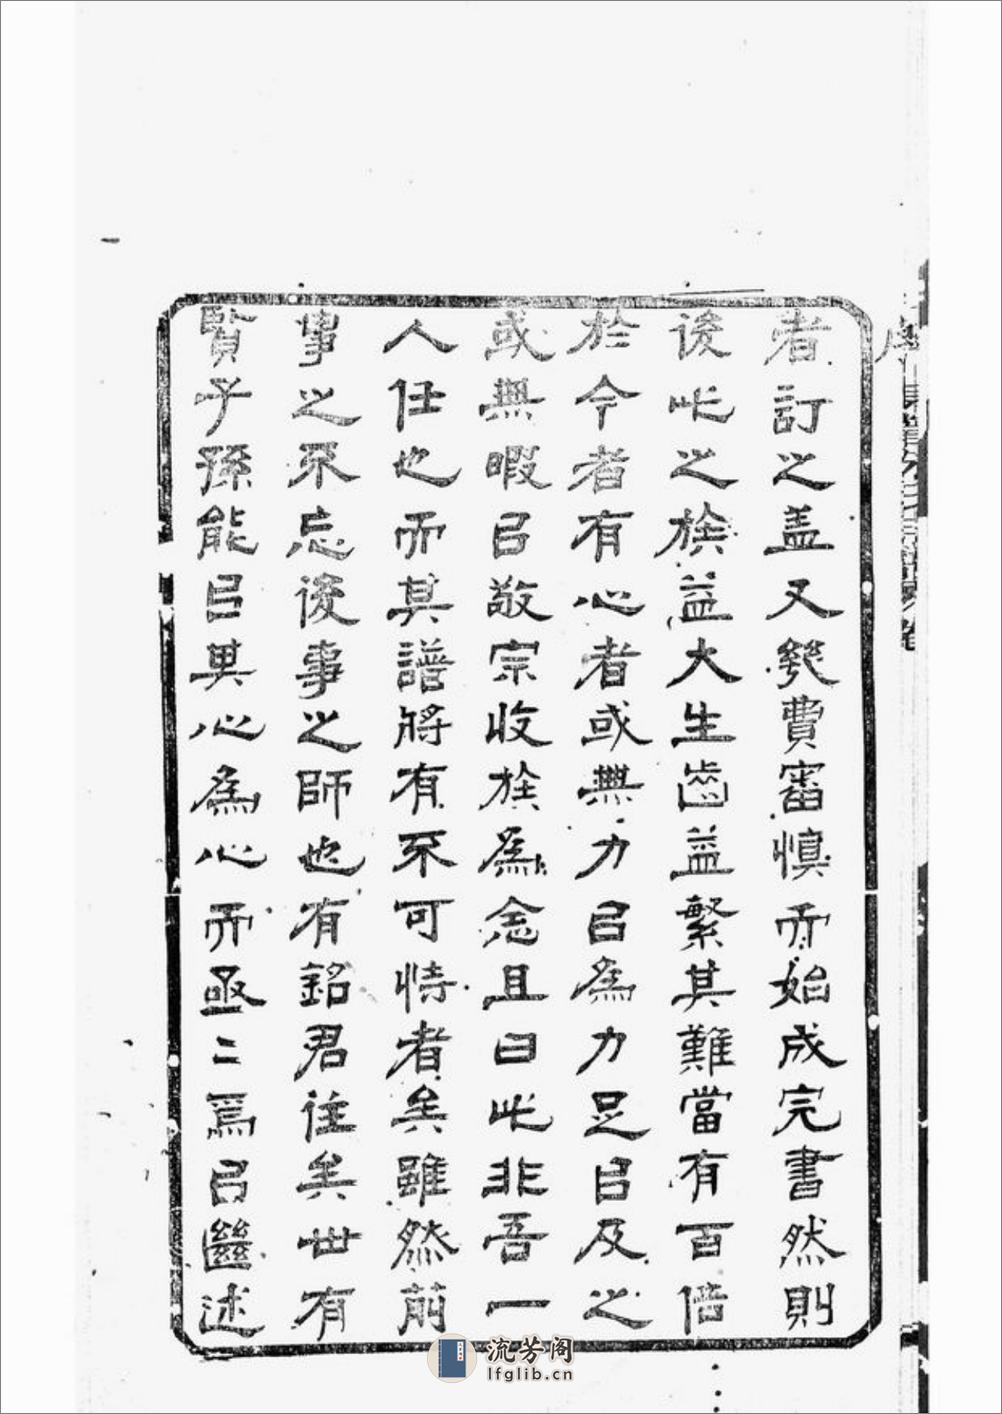 者訂之盖又幾費審慎而始成完書然則
後此之族益大生齒益繁其難當有百倍
於今者有心者或無力㠯為力足㠯及之
或無暇㠯敬宗收族為念且曰此非吾一
人任也而其譜將有不可恃者矣雖然前
事之不忘後事之師也有銘君往矣世有
賢子孫能㠯其心為心而亟二焉㠯繼述
流芳阁
lfglib.cn